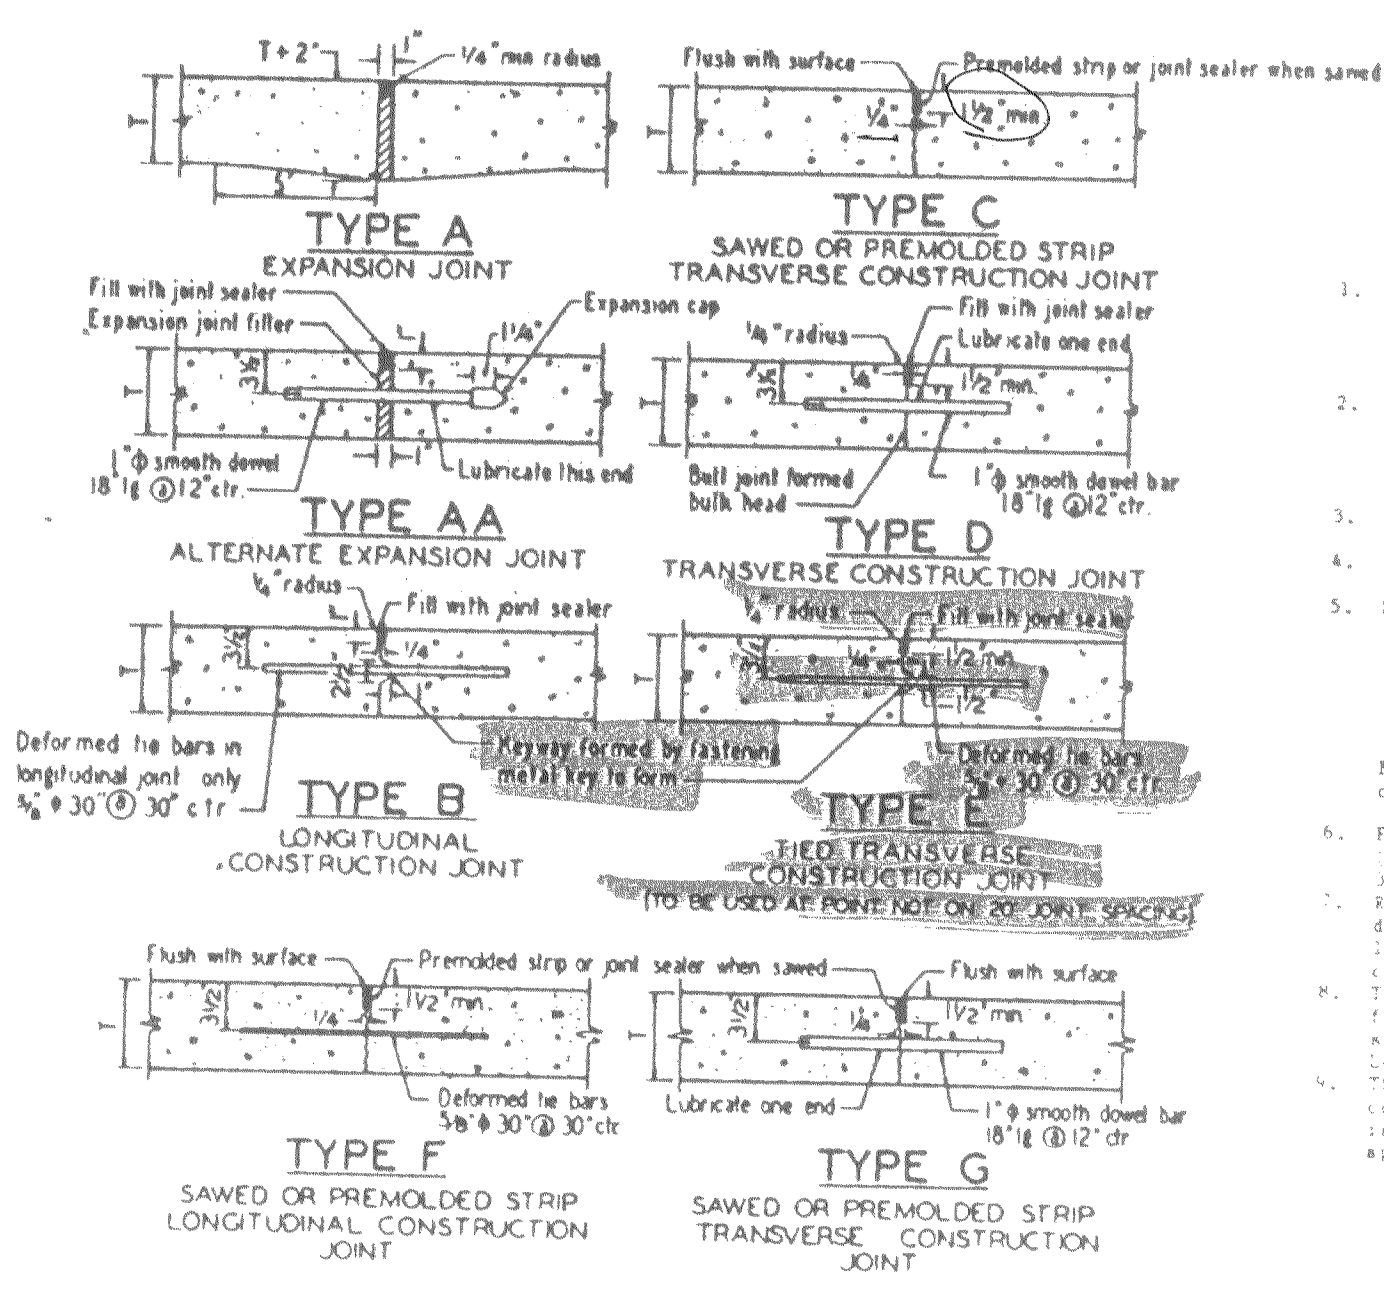 T + 2"
1"
1/4" min radius
T
5'
TYPE A
EXPANSION JOINT
Flush with surface
Premolded strip or joint sealer when sawed
1/4"
1 1/2" min
T
TYPE C
SAWED OR PREMOLDED STRIP
TRANSVERSE CONSTRUCTION JOINT
Fill with joint sealer
Expansion joint filler
Expansion cap
1 1/4"
3 1/2
T
1"
1"ϕ smooth dowel
18"lg @ 12"ctr.
Lubricate this end
TYPE AA
ALTERNATE EXPANSION JOINT
Fill with joint sealer
1/4" radius
Lubricate one end
1/4"
1 1/2" min.
3 1/2
T
Butt joint formed
bulk head
1"ϕ smooth dowel bar
18"lg @ 12" ctr.
TYPE D
TRANSVERSE CONSTRUCTION JOINT
1/4" radius
Fill with joint sealer
3 1/2
1/4"
2 1/2
T
Deformed tie bars in
longitudinal joint only
5/8" ϕ 30" @ 30" ctr
Keyway formed by fastening
metal key to form
TYPE B
LONGITUDINAL
CONSTRUCTION JOINT
1/4" radius
Fill with joint sealer
1/4"
1 1/2" min
1 1/2"
T
Deformed tie bars
5/8" ϕ 30 @ 30 ctr
TYPE E
TIED TRANSVERSE
CONSTRUCTION JOINT
(TO BE USED AT POINT NOT ON 20' JOINT SPACING)
Flush with surface
Premolded strip or joint sealer when sawed
3 1/2
1/4"
1 1/2" min.
T
Deformed tie bars
5/8" ϕ 30" @ 30" ctr
TYPE F
SAWED OR PREMOLDED STRIP
LONGITUDINAL CONSTRUCTION
JOINT
Flush with surface
3 1/2
1/4"
1 1/2" min
T
Lubricate one end
1" ϕ smooth dowel bar
18"lg @ 12" ctr
TYPE G
SAWED OR PREMOLDED STRIP
TRANSVERSE CONSTRUCTION
JOINT
1.
2.
3.
4.
5.
6.
8.
9.